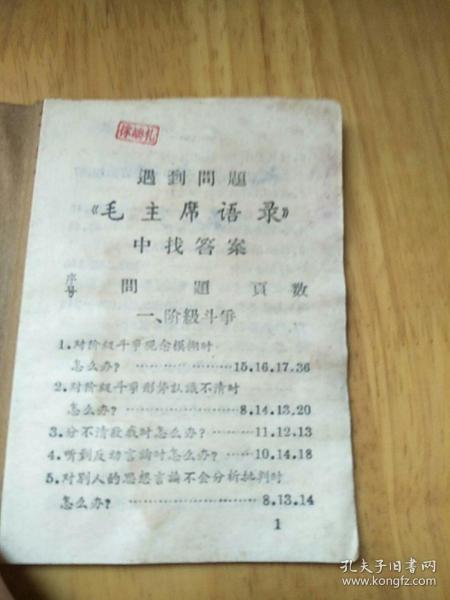 遇到問題
《毛主席语录》
中找答案
序号 問 題 頁 数
一、阶級斗爭
1.对阶級斗爭观念模糊时
怎么办?……15.16.17.36
2.对阶級斗爭形势認識不清时
怎么办?……8.14.13.20
3.分不清敌我时怎么办?……11.12.13
4.听到反动言論时怎么办?……10.14.18
5.对别人的思想言論不会分析批判时
怎么办?……8.13.14
1
孔夫子旧书网
www.kongfz.com